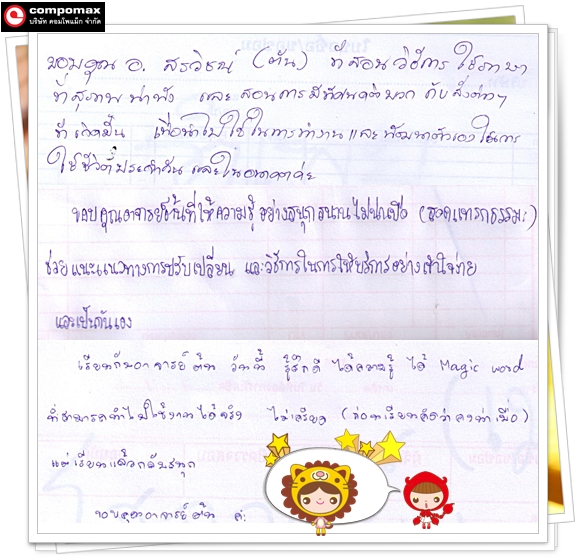 compomax
บริษัท คอมโพแม็ก จำกัด
ขอบคุณ อ. สรวิชญ์ (ต้น) ที่สอนวิธีการ ใช้ภาษา
ที่สุภาพ น่าฟัง และ สอนการมีทัศนคติบวก กับ สิ่งต่างๆ
ที่เกิดขึ้น เพื่อนำไปใช้ในการทำงาน และ พัฒนาตัวเอง
ใช้ชีวิตประจำวัน และในอนาคตค่ะ
ขอบคุณอาจารย์ต้นที่ให้ความรู้ อย่างสนุกสนานไม่น่าเบื่อ (สอดแทรกธรรมะ)
ช่วยแนะแนวทางการปรับเปลี่ยน และวิธีการในการให้บริการอย่างเข้าใจง่าย
และเป็นกันเอง
เรียนกับอาจารย์ต้น วันนี้ รู้สึกดี ได้ความรู้ ได้ Magic word
ที่สามารถนำไปใช้งานได้จริง ไม่เครียด (ก่อนเรียนคิดว่าคงน่าเบื่อ)
แต่เรียนแล้วกลับสนุก
ขอบคุณอาจารย์ต้น ค่ะ